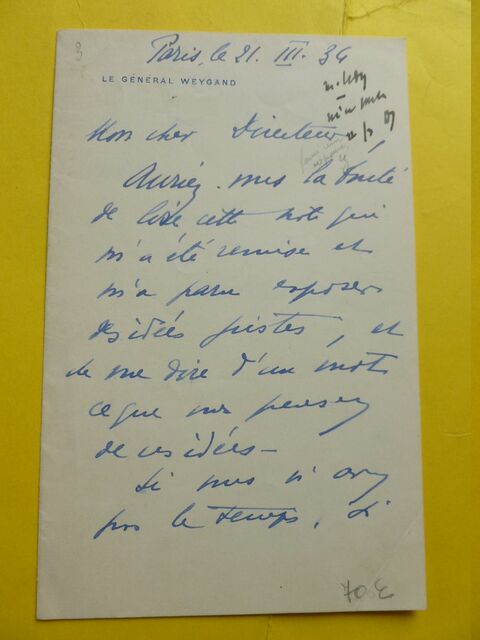 Paris, le 21. III. 34
LE GÉNÉRAL WEYGAND
Mon cher Directeur,
Auriez-vous la bonté
de lire cette note qui
m'a été remise et
m'a paru exposer
des idées justes, et
de me dire d'un mot
ce que vous pensez
de ces idées -
Si vous n'avez
pas le temps, si
70 E